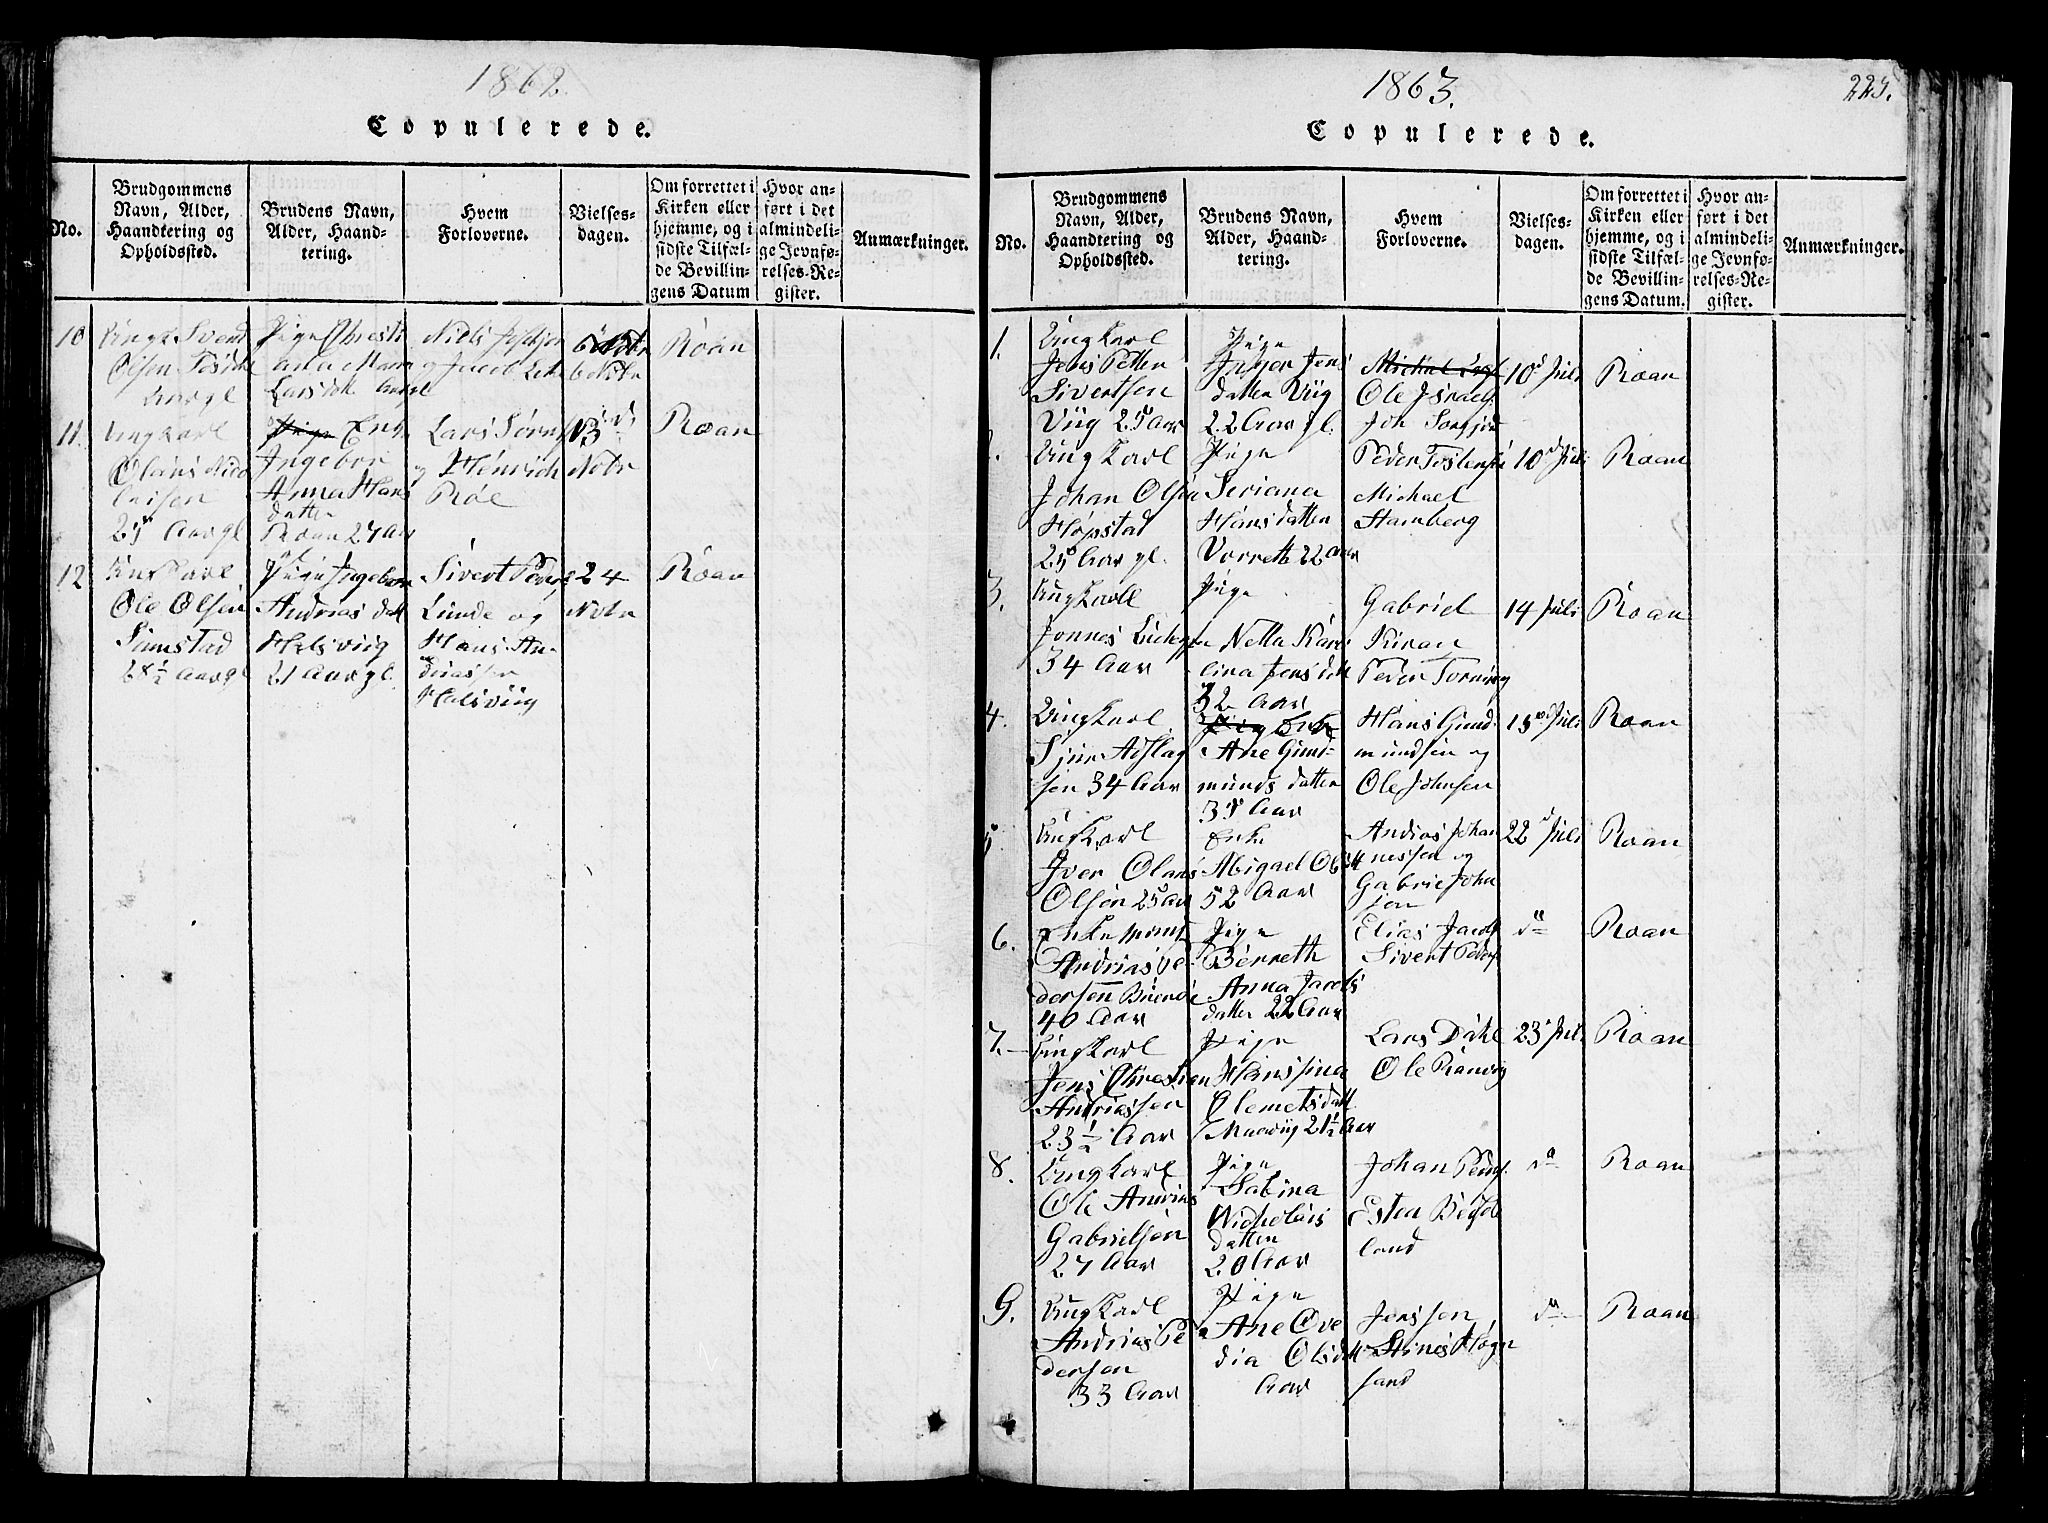 1862.
Copulerede.
No.
Brudgommens
Navn, Alder,
Haandtering og
Opholdssted.
Brudens Navn,
Alder, Haand-
tering.
Hvem
Forloverne.
Vielses-
dagen.
Om forrettet i
Kirken eller
hjemme, og i
sidste Tilfæl-
de Bevillin-
gens Datum
Hvor an-
ført i det
almindeli-
ge Jevnfø-
relses-Re-
gister.
Anmærkninger.
10
Ungk Svend
Olsen
Pige Chresti
Larsdtr
Niels
og Jacob
6 Nobr
Roan
11.
Ungkarl
Olaus Nico
laisen
25 Aar gl
Pige Enk.
Ingebor
Anna Hans
datter
Roan 27 Aar
Lars Sørns
og Henrich
Röe
13
Nobr
Roan
12
Ungkarl
Ole Olsen
Sumstad
28½ Aar gl
Pige Ingebor
Andrias datt
Halsviig
21 Aar gl.
Sivert Peders
Lunde og
Hans An-
driassen
Halsviig
24
Nobr
Roan
1863.
225.
Copulerede.
No.
Brudgommens
Navn, Alder,
Haandtering og
Opholdssted.
Brudens Navn,
Alder, Haand-
tering.
Hvem
Forloverne.
Vielses-
dagen.
Om forrettet i
Kirken eller
hjemme, og i
sidste Tilfæl-
de Bevillin-
gens Datum.
Hvor an-
ført i det
almindeli-
ge Jevnfø-
relses-Re-
gister.
Anmærkninger.
1.
Ungkarl
Jens Petter
Sivertsen
Viig 25 Aar
Pige
Inger Jens
datter Viig
22 Aar gl.
Michal
Ole Israels
Joh Sørfjord
10d Juli
Roan
2.
Ungkarl
Johan Olsen
Hopstad
25 Aar gl.
Pige
Seriana
Hansdatter
Vorreth 22 Aar
Peder Tostensen
Michael
Stamberg
10d Juli
Roan
3.
Ungkarl
Jonnes
34 Aar
Pige
Netta Karo
lina Jensdtt
32 Aar
Gabriel
Kiran
Peder Terning
14 Juli
Roan
4.
Ungkarl
Sjur Aslag
sen 34 Aar
Pig Enk
Ane Gund-
munds datter
35 Aar
Hans Gund-
mundsen og
Ole Johnsen
15 Juli
Roan
5
Ungkarl
Iver Olaus
Olsen 25 Aar
Enke
Abigael Olsdtt
52 Aar
Andras Johan
nessen og
Gabriel John
sen
22d Juli
Roan
6.
Enkemand
Andrias Pe-
dersen
40 Aar
Pige
Berreth
Anna Jacobs
datter 22 Aar
Elias Jacobs
Sivert Peders
do
Roan
7.
Ungkarl
Jens Chrestian
Andriassen
23½ Aar
Pige
Hanssina
Olemetsdatt
21½ Aar
Lars Dahl
Ole
23d Juli
Roan
8.
Ungkarl
Ole Andrias
Gabrielsen
27 Aar
Pige
Sabina
Nicholais
datter
20 Aar
Johan Peders
Esten
land
do
Roan
9.
Ungkarl
Andrias Pe
dersen
33 Aar
Pige
Ane Ove
dia Olsdtt
Aar
Jenssen
Stines Høgn
sand
do
Roan